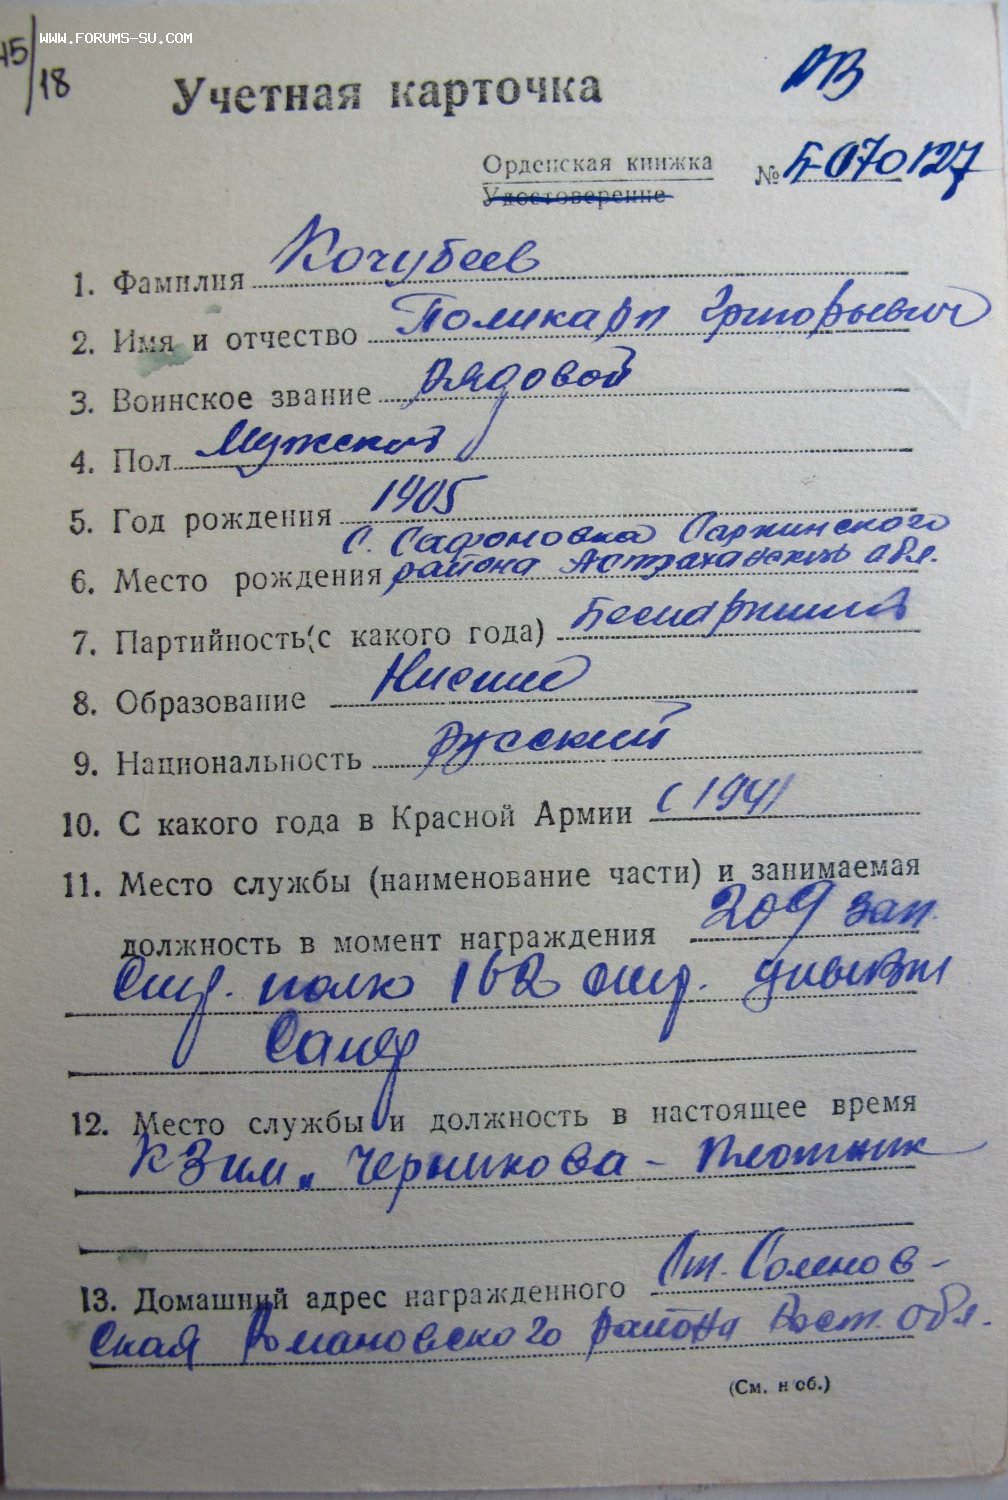 WWW.FORUMS-SU.COM
45/18
Учетная карточка
Орденская книжка № Б-070127
Удостоверение
1. Фамилия Кочубеев
2. Имя и отчество Поликарп Григорьевич
3. Воинское звание Рядовой
4. Пол Мужской
5. Год рождения 1905
с. Сафоновка
6. Место рождения района Астраханской обл.
7. Партийность (с какого года) Беспартийный
8. Образование Низшее
9. Национальность русский
10. С какого года в Красной Армии с 1941
11. Место службы (наименование части) и занимаемая
должность в момент награждения 209 зап.
стр. полк 162 стр. дивизии
Сапер
12. Место службы и должность в настоящее время
К-З им. Черникова - плотник
13. Домашний адрес награжденного Ст. Соленов-
ская Романовского района Рост. обл.
(См. н об.)